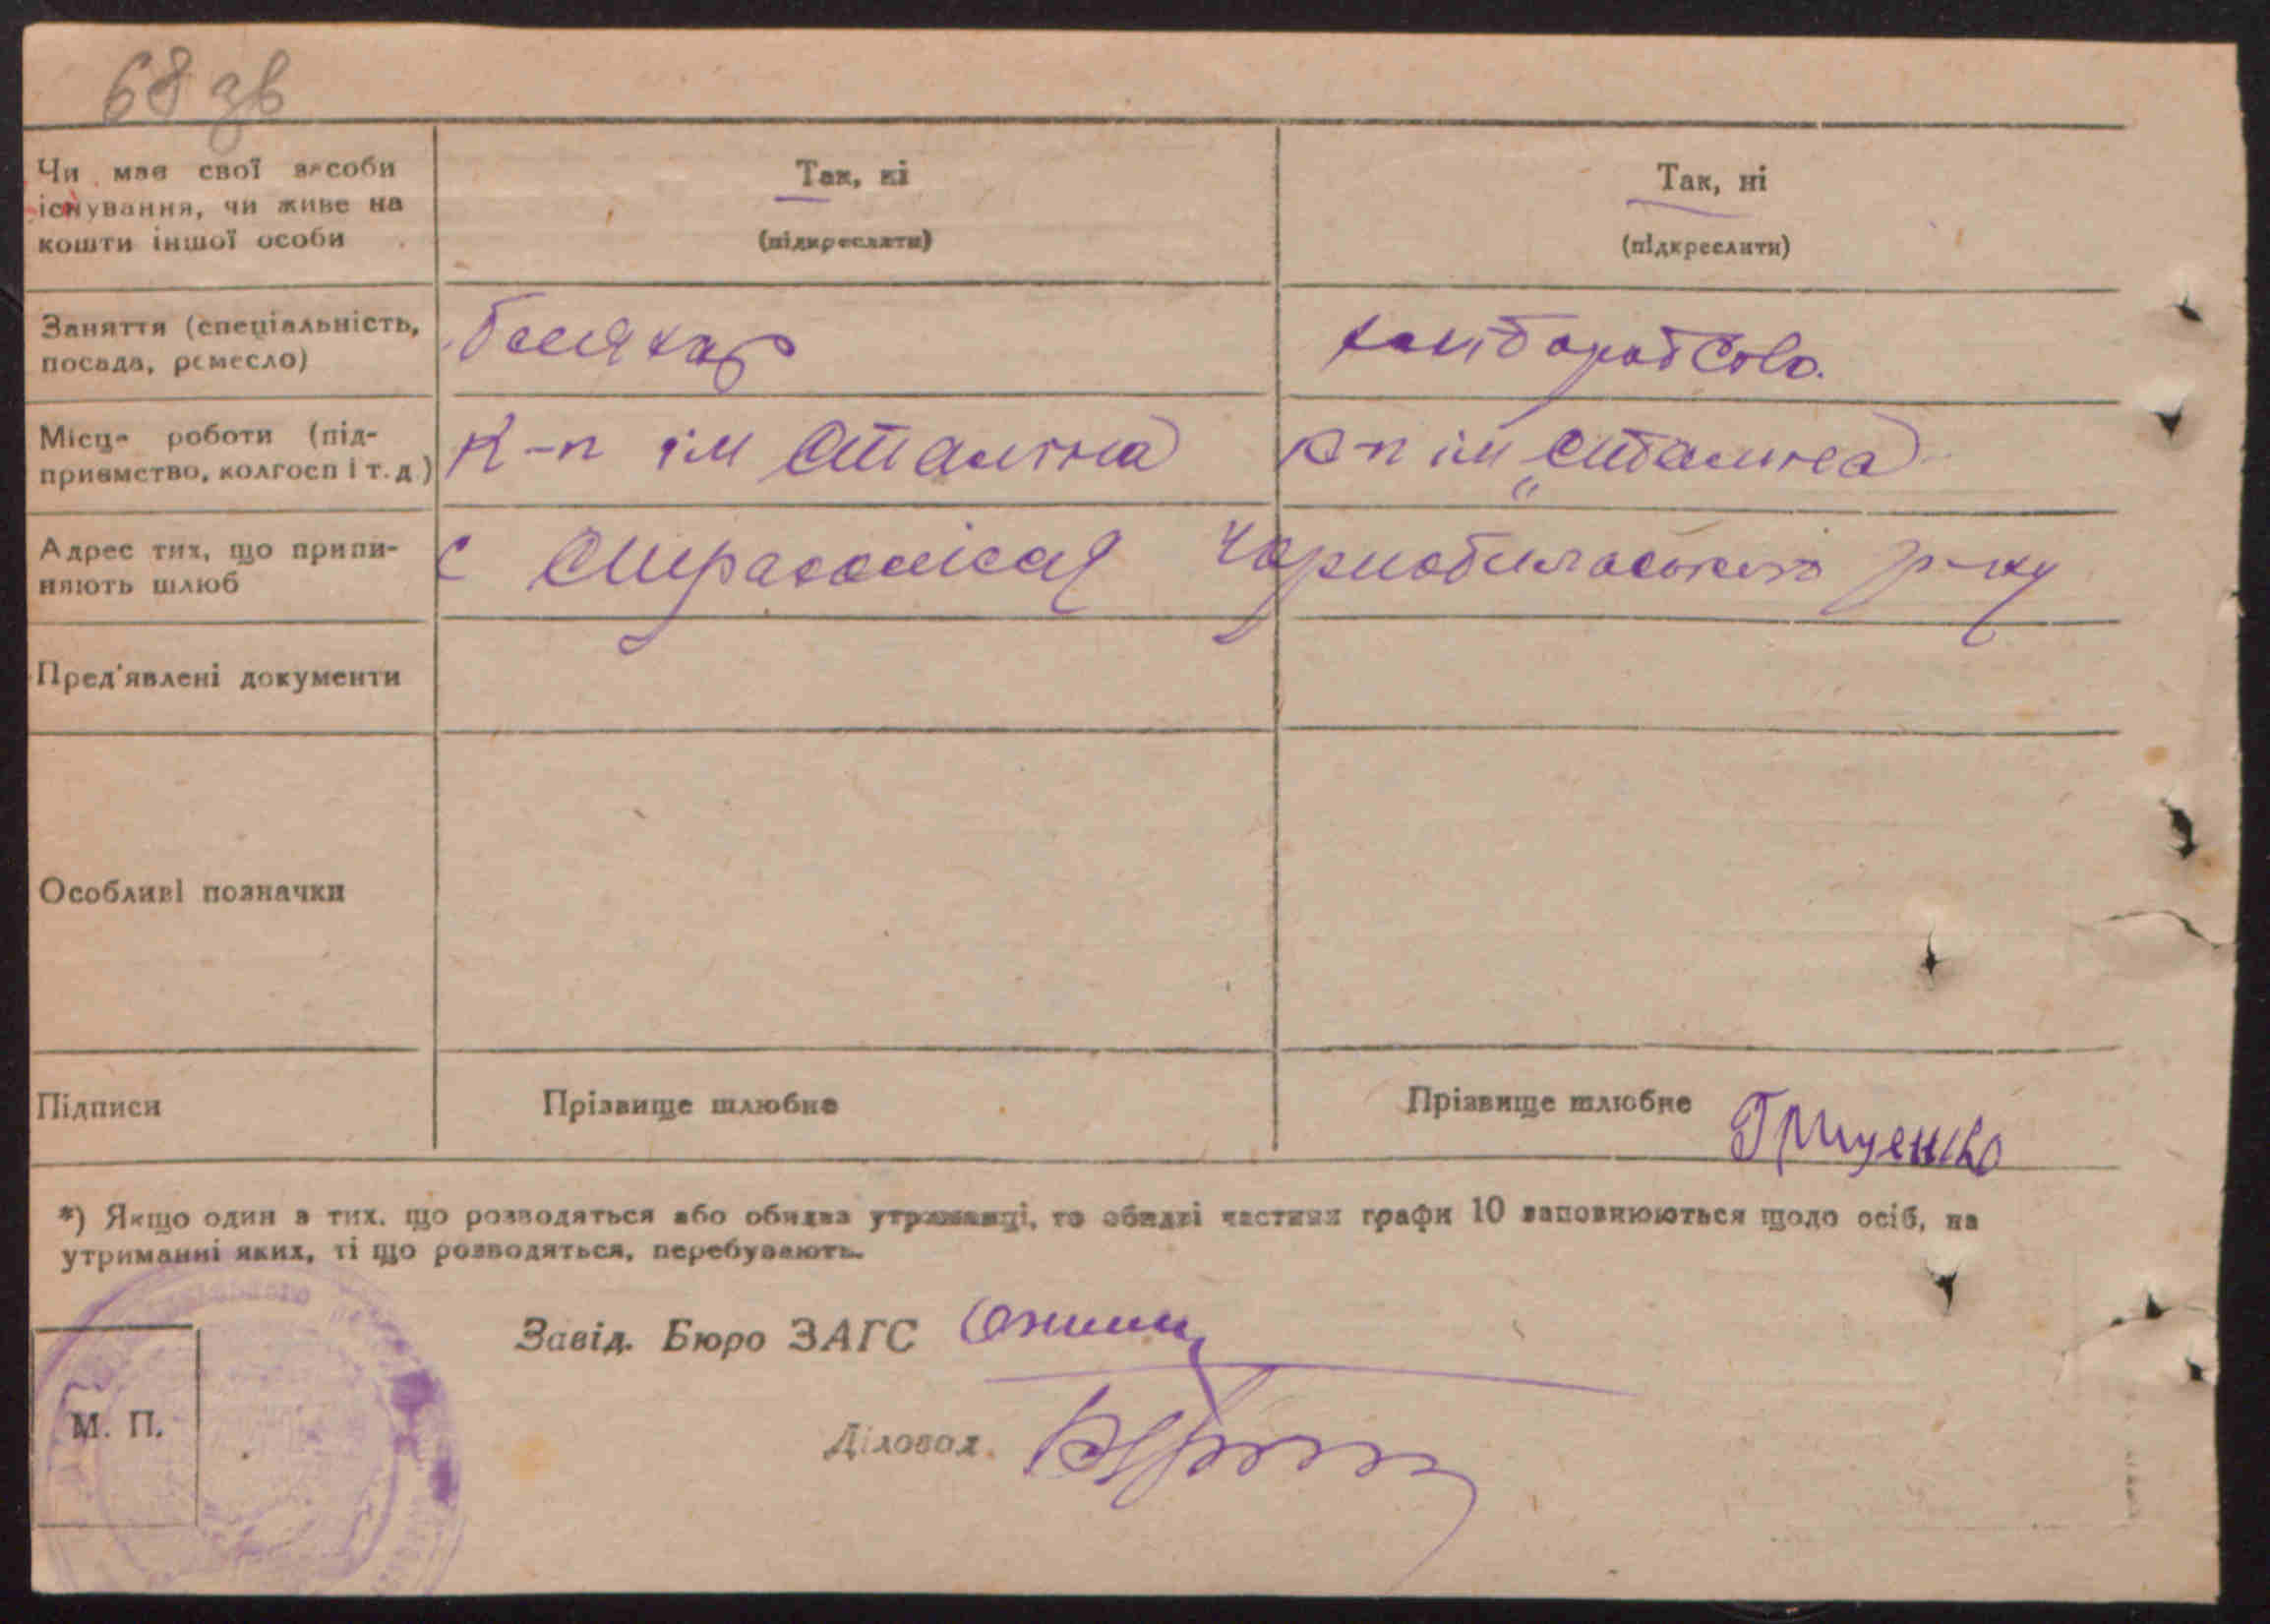 68 зв
Чи має свої засоби
існування, чи живе на
кошти іншої особи
Так, ні
(підкреслити)
Так, ні
(підкреслити)
Заняття (спеціальність,
посада, ремесло)
Місце роботи (під-
приємство, колгосп і т. д.)
К-п ім Сталіна
К-п ім „Сталіна
Адрес тих, що припи-
няють шлюб
с Чорнобаївського р-ну
Пред'явлені документи
Особливі позначки
Підписи
Прізвище шлюбне
Прізвище шлюбне Грищенко
*) Якщо один з тих. що розводяться або обидва утриманці, то обидві частини графи 10 заповнюються щодо осіб, на
утриманні яких, ті що розводяться, перебувають.
Завід. Бюро ЗАГС
М. П.
Діловод.